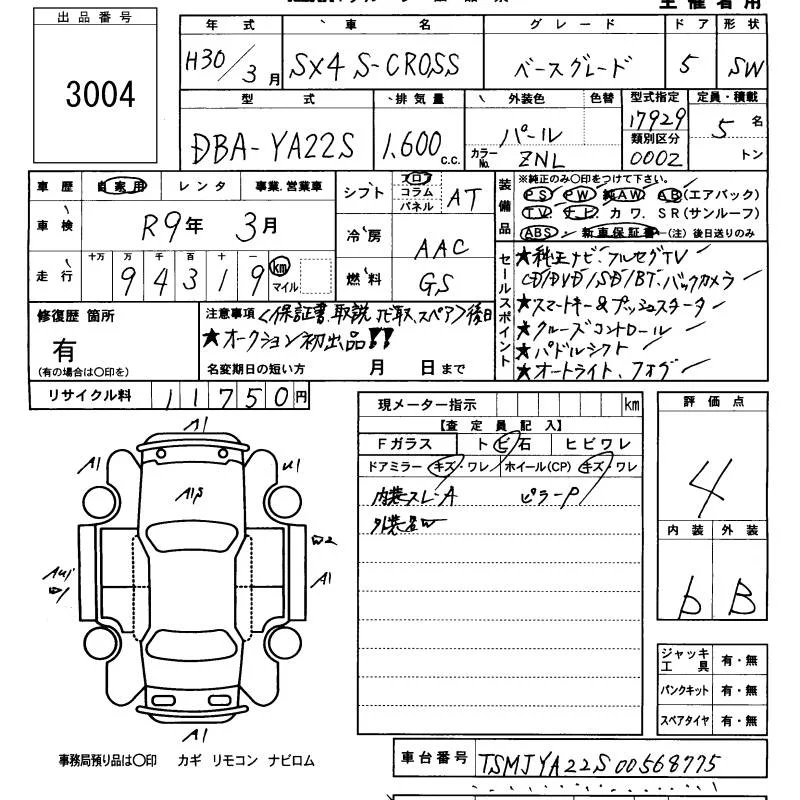 出品番号
3004
年 式 車 名 グレード ドア 形状
H30/3月 SX4 S-CROSS ベースグレード 5 SW
型 式 排気量 外装色 色替 型式指定 定員・積載
DBA-YA22S 1,600 C.C. パール 17929 5名
カラーNo. ZNL 類別区分 0002 トン
車歴 自家用 レンタ 事業.営業車
車検 R9年 3月
走行 十万 万 千 百 十 一
94319 km マイル
シフト フロア コラム パネル AT
冷房 AAC
燃料 GS
装備品 ※純正のみ〇印をつけて下さい。
PS PW 純AW AB(エアバック)
TV ナビ カワ. SR(サンルーフ)
ABS 新車保証書―(注) 後日送りのみ
セールスポイント
★純正ナビ・フルセグTV
CD/DVD/SD/BT.バックカメラ
★スマートキー&プッシュスタータ
★クルーズコントロール
★パドルシフト
★オートライト、フォグ
修復歴 箇所
有
(有の場合は〇印を)
注意事項 <保証書、取説、ナビ取、スペア>後日
★オークション初出品!!
名変期日の短い方 月 日まで
リサイクル料 11750円
現メーター指示 km
【査定員記入】
Fガラス トビ石 ヒビワレ
ドアミラー キズ・ワレ ホイール(CP) キズ・ワレ
内装スレ-A ピラーP
外装名W
評価点
4
内装 外装
b B
A1
A1 U1
A1β
W2
A1
A1
ジャッキ工具 有・無
パンクキット 有・無
スペアタイヤ 有・無
事務局預り品は〇印 カギ リモコン ナビロム
車台番号 TSMJYA22S00568775